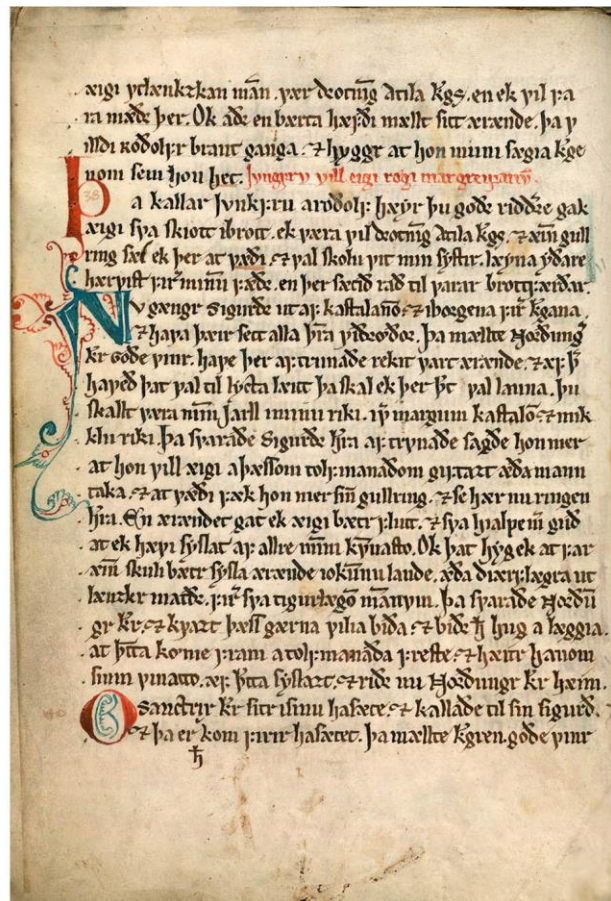 æigi utlænkzkan man. vær drotning Atila kgs. en ek vil fa
ra mæðr þer. Ok aðr en bærta hæfði mællt sitt ærænde. þa v
illdi roðolfr brаut ganga. ⁊ hyggr at hon muni sægia kge
nom sem hon het. Jungfru vill eigi
38
Þa kallar Junkfru a roðolf. hæyr þu goðr riddere gak
æigi sva skiott ibrott. ek væra vil drotning Atila kgs. ⁊ æinn gull
ring sæl ek þer at væði. ⁊ val skolu vit min systir. læyna yðare
hærvist firir minum fæðr. en þer sætið rað til varar brottfærðar.
Nu gængr Sigurðr ut af kastalano. ⁊ iborgena firir kgana.
⁊ hava þæir sett alla þæira viðroðor. þa mællte Norðungr
kr goðr vinr. have þer af trunaðe rekit vart ærænde. ⁊ ef þer
haveð þat val til lycta læitt þa skal ek þer þat val launa. þu
skallt væra minn Jarll iminu riki. ivir margum kastalom ⁊ mik
klu riki. Þa svaraðe Sigurðr. hæra af trvnaðe sagðe hon mer
at hon vill æigi a þæssom tolfmanaðom giftazt æða mann
taka. ⁊ at væði fæk hon mer sin gullring. ⁊ se hær nu ringen
hæra. En ærændet gat ek æigi bætr flutt. ⁊ sva hialpe mer guð
at ek hæfi syslat af allre minni kunasto. Ok þat hyg ek at far
æinn skuli bætr sysla ærænde iokunnu lande. æða diærflægra ut
lænzkr maðr. firir sva tigurlægom mannvm. Þa svaraðe Norðun
gr kr. ⁊ kvazt þæss gærna vilia biða. ⁊ biðr hann hug a læggia.
at þetta kome fram a tolfmanaða freste. ⁊ hæitr hanom
sinni vinatto. æf þetta syslazt. ⁊ riðr nu Norðungr kr hæim.
40
Osanctrix kr sitr isinu hasæte. ⁊ kallaðe til sin sigurð.
⁊ þa er kom firir hasætet. þa mællte kgren. goðe vinr
hann